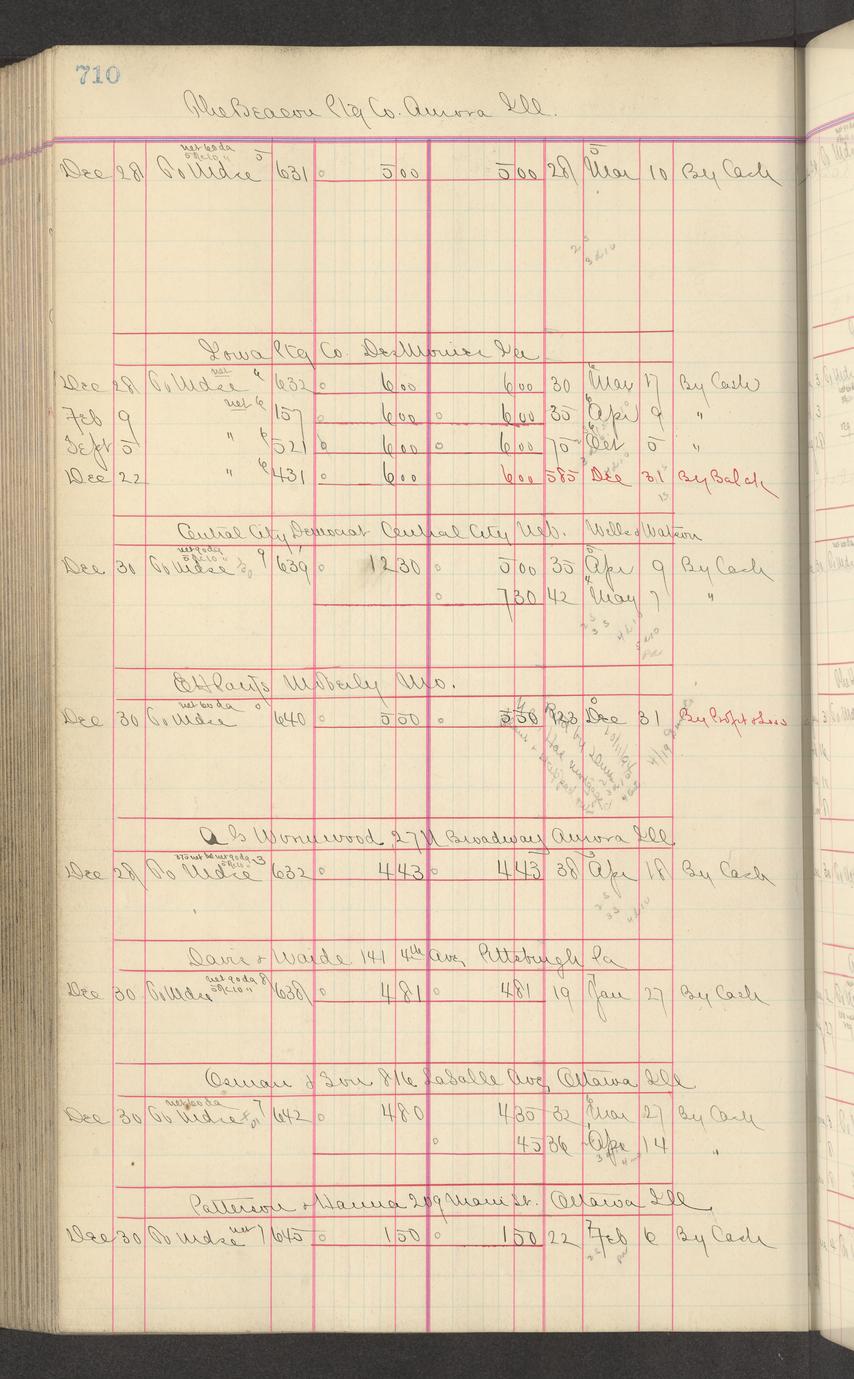 710
The Beacon Ptg Co. Aurora Ill.
net 60 da 5
5% 10 " 5
Dec 28 To Mdse 631 500 500 28 Mar 10 By Cash
Iowa Ptg Co. Des Moines Ia
Dec 28 To Mdse net 6 632 600 600 30 Mar 17 By Cash
Feb 9 net 6 157 600 600 35 Apr 9 "
Sept 5 " 6 521 600 600 75 Oct 5 "
Dec 22 " 6 431 600 600 585 Dec 31 By Balce
Central City Democrat Central City Neb. Wells & Watson
net 90 da 9 5
5% 10 "
Dec 30 To Mdse 639 1230 500 35 Apr 9 By Cash
730 42 May 7 "
Moberly Mo.
net 60 da 0
Dec 30 To Mdse 640 550 550 Dec 31 By Profit & Loss
A G Wormwood 27 N Broadway Aurora Ill
Dec 28 To Mdse 3 632 443 443 38 Apr 18 By Cash
Davis & Waide 141 4th Ave, Pittsburgh Pa
net 90 da 8
5% 10 "
Dec 30 To Mdse 638 481 481 19 Jan 27 By Cash
Osman & Son 816 LaSalle Ave, Ottawa Ill
net 60 da 7
Dec 30 To Mdse 642 480 435 32 Mar 27 By Cash
45 36 Apr 14 "
Patterson & Hanna 209 Main St. Ottawa Ill
Dec 30 To Mdse net 7 645 150 150 22 Feb 6 By Cash